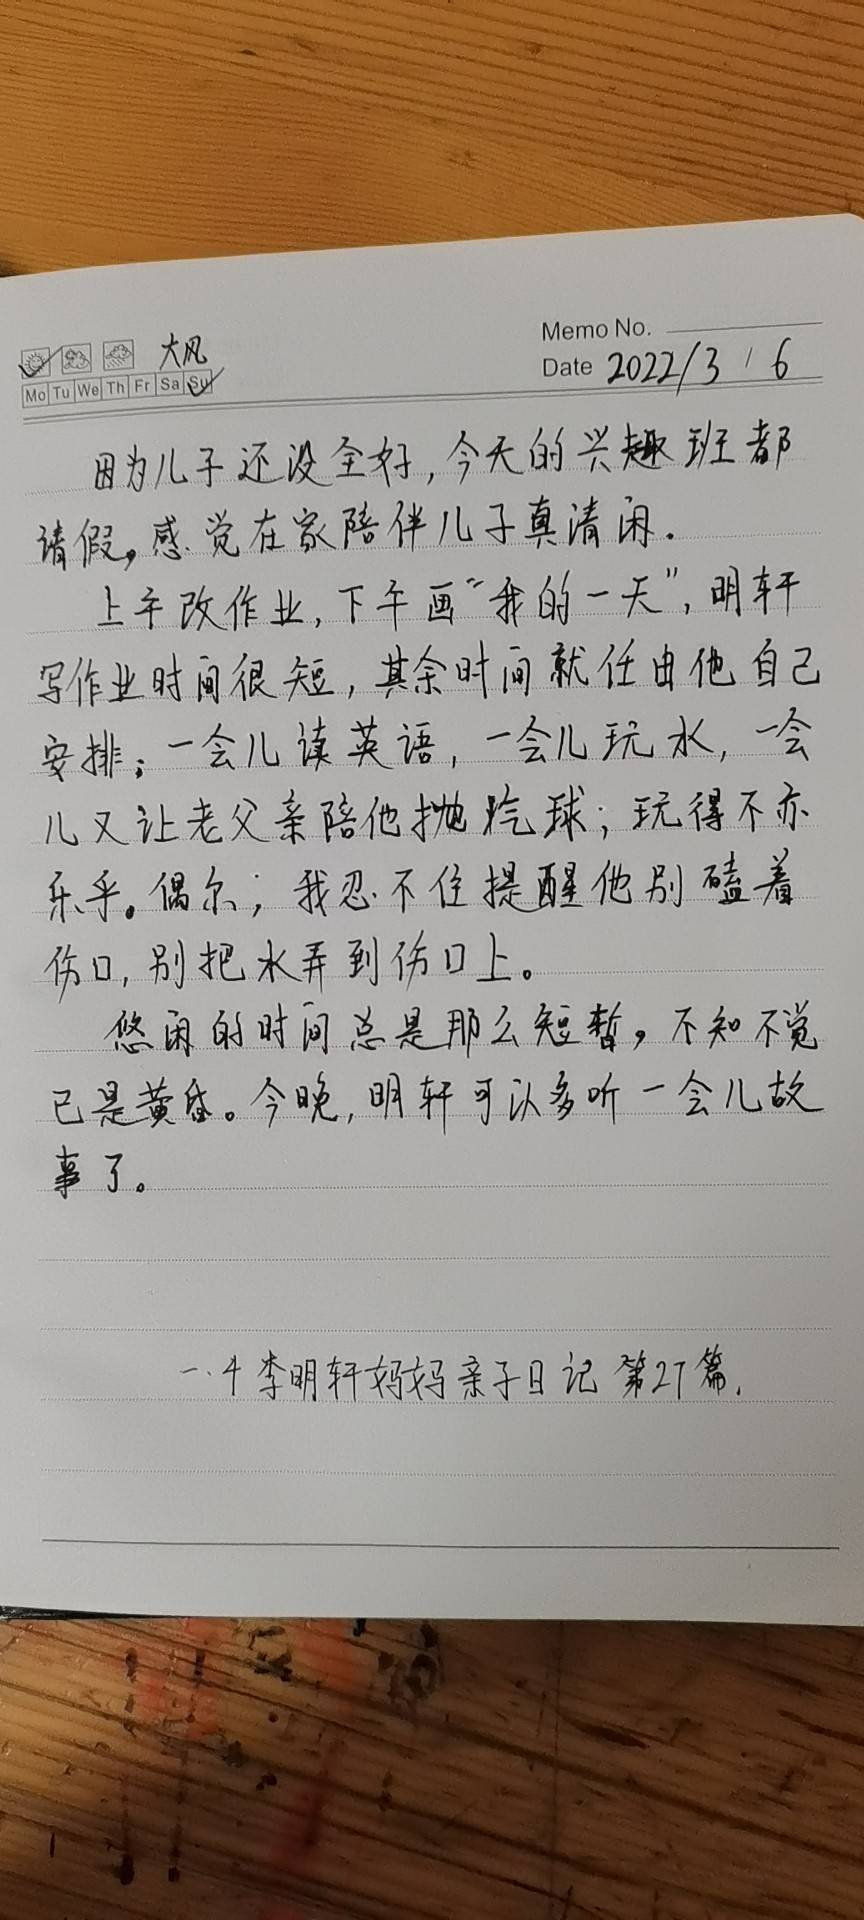 大风
Memo No.
Mo Tu We Th Fr Sa Su
Date 2022/3/6
因为儿子还没全好,今天的兴趣班都
请假。感觉在家陪伴儿子真清闲.
上午改作业,下午画“我的一天”,明轩
写作业时间很短,其余时间就任由他自己
安排;一会儿读英语,一会儿玩水,一会
儿又让老父亲陪他抛汽球;玩得不亦
乐乎。偶尔;我忍不住提醒他别磕着
伤口,别把水弄到伤口上。
悠闲的时间总是那么短暂。不知不觉
已是黄昏。今晚,明轩可以多听一会儿故
事了。
一.4李明轩妈妈亲子日记 第27篇.